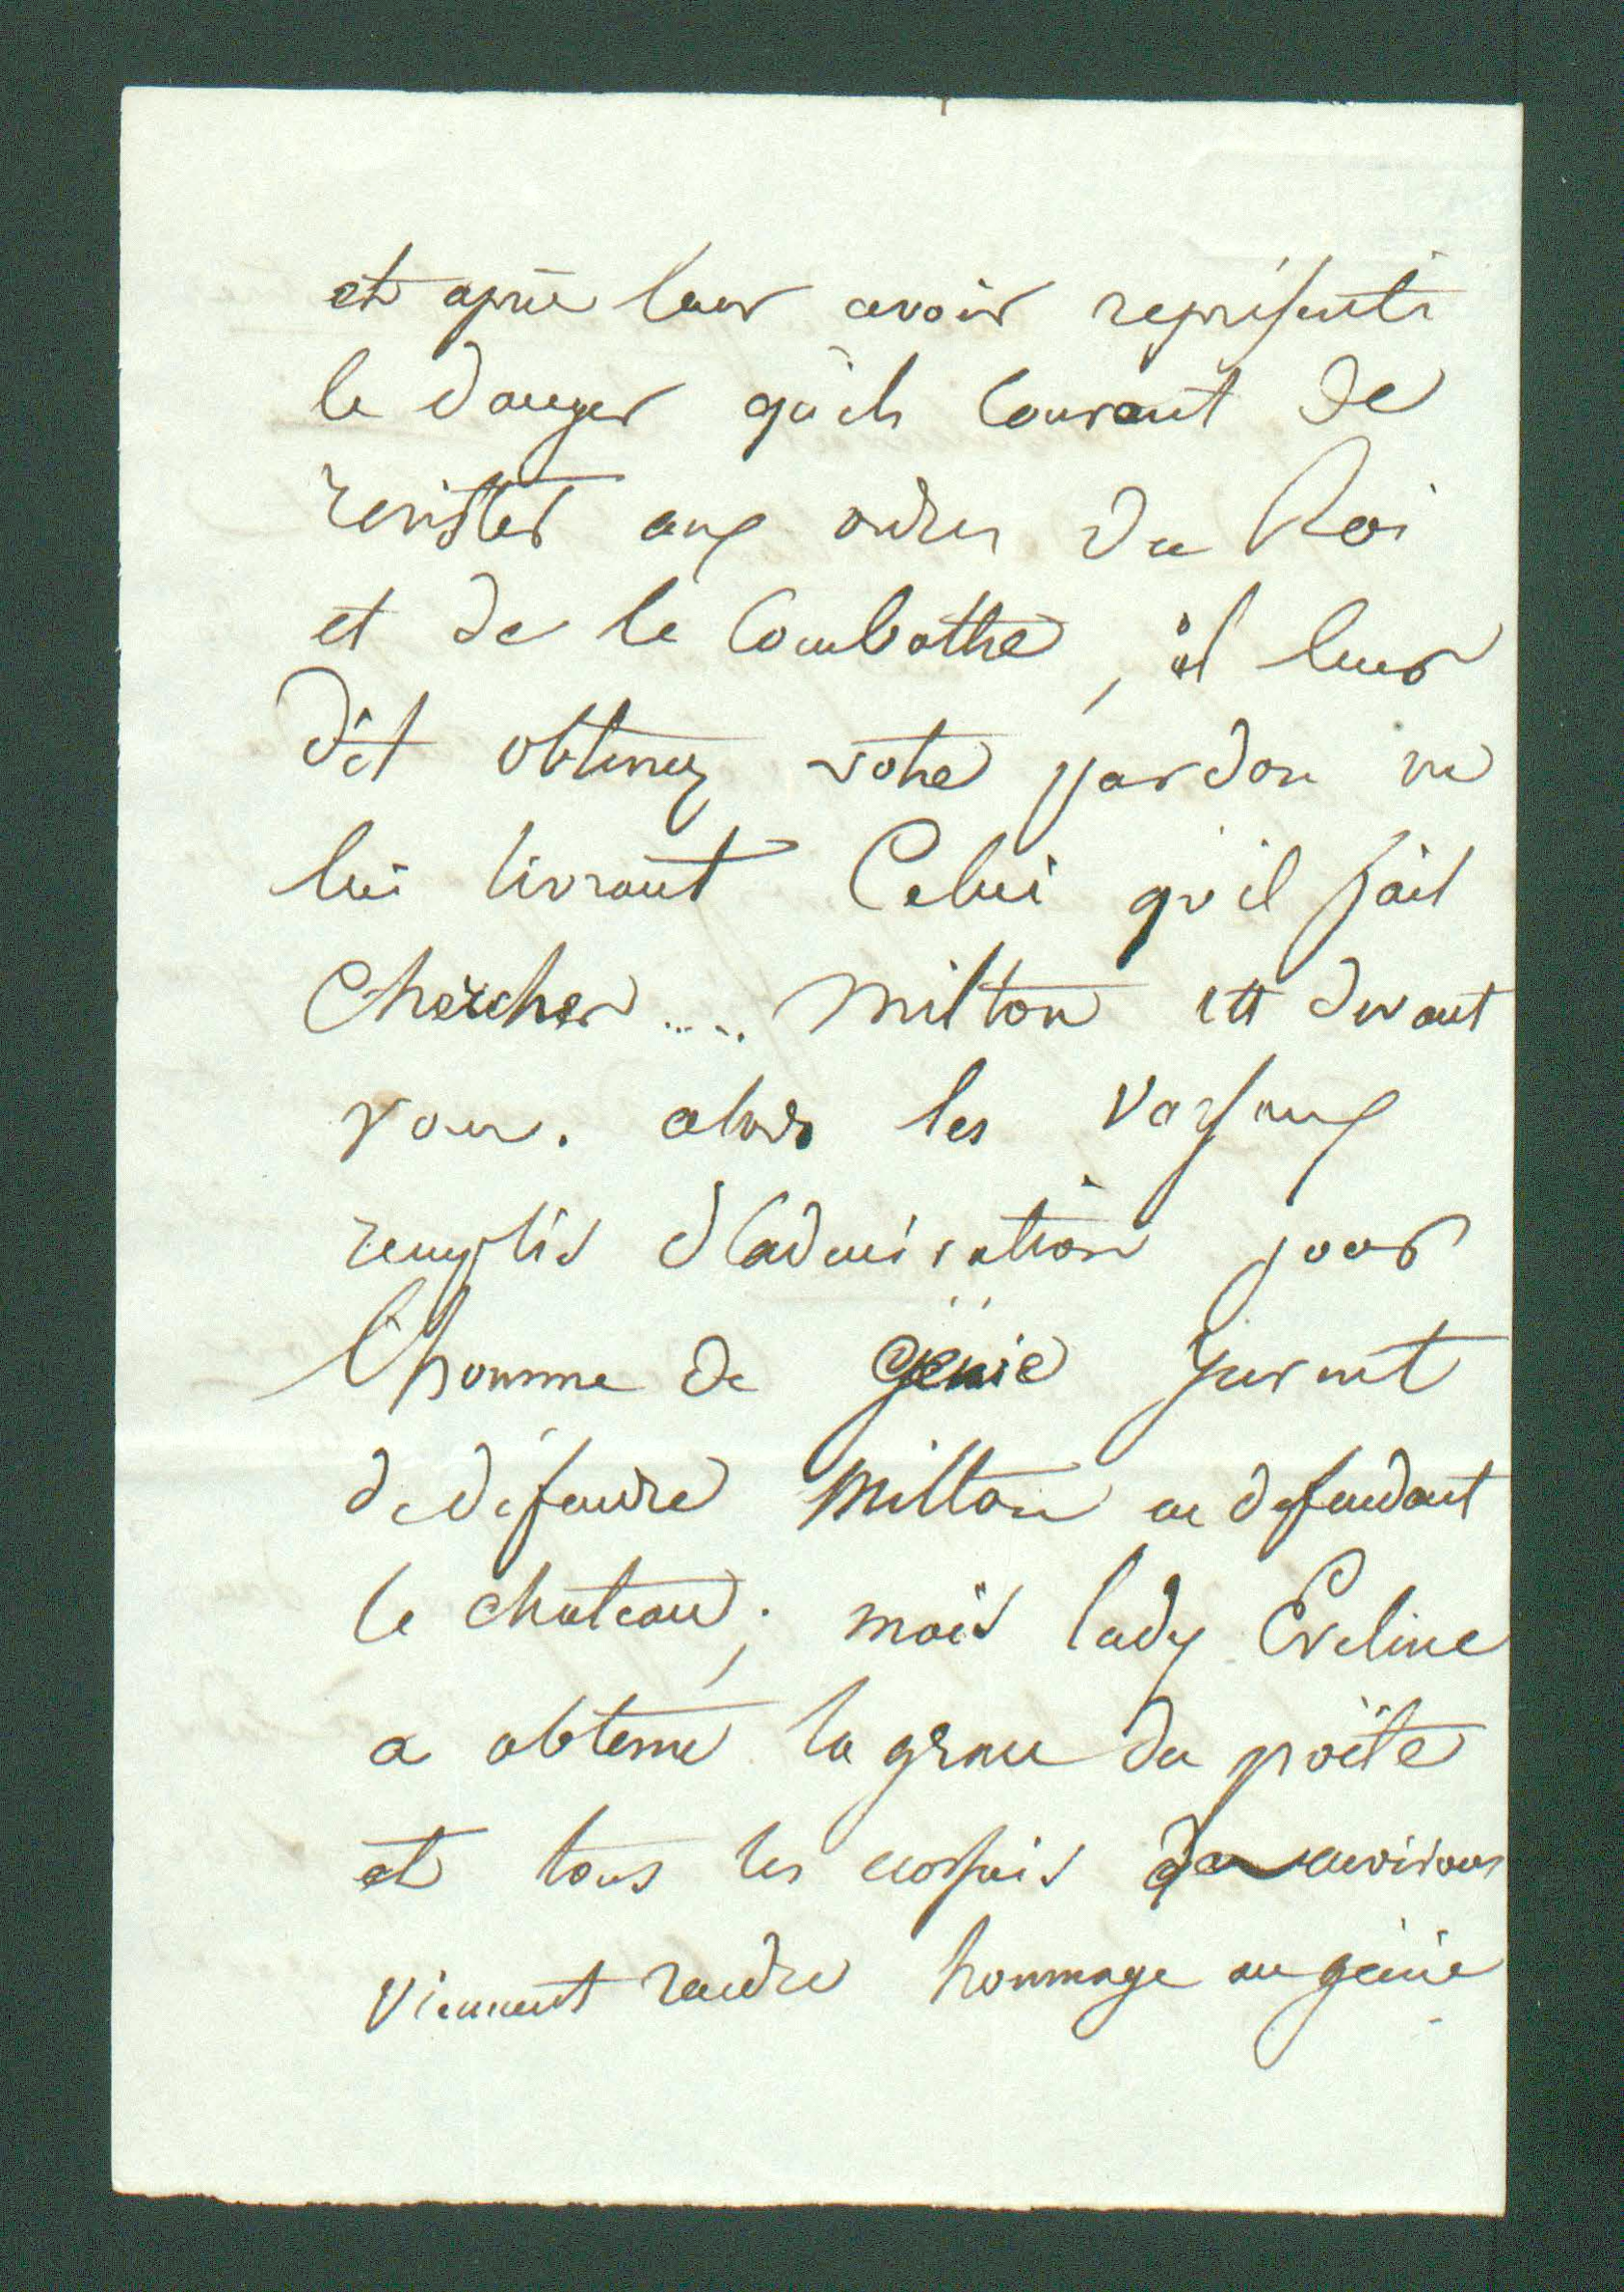 et après leur avoir représenté
le danger qu'ils courent de
resister aux ordres du Roi
et de le combattre, il leur
dit obtenez votre pardon en
lui livrant Celui qu'il fait
chercher ..... Milton est devant
vous. alors les vassaux
remplis d'admiration pour
l'homme de génie jurent
de défendre Milton en défendant
le chateau; mais lady Eveline
a obtenu la grace du poëte
et tous les ecossais des environs
viennent rendre hommage au génie